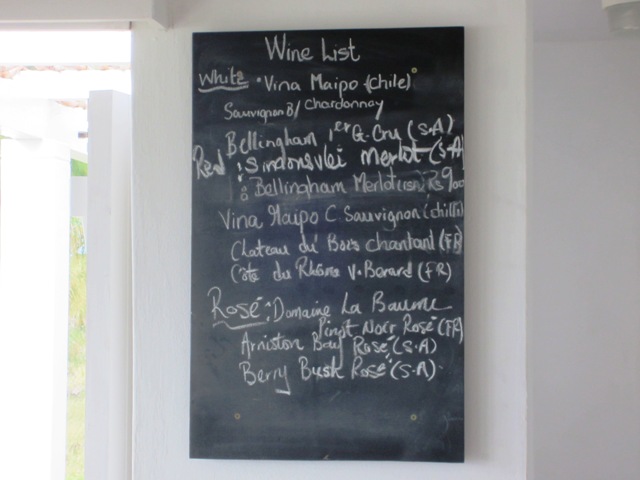 Wine List
White • Vina Maipo (Chile)
Sauvignon B/ Chardonnay
Bellingham 1er G. Cru (S.A)
Red : Simonsvlei Merlot (S.A)
Bellingham Merlot Rs 900
Vina Maipo C. Sauvignon (chili)
Chateau du Bois chantant (FR)
Côte du Rhône V. Berard (FR)
Rosé : Domaine La Baume
Pinot Noir Rosé (FR)
Arniston Bay Rosé (S.A)
Berry Bush Rosé (S.A)